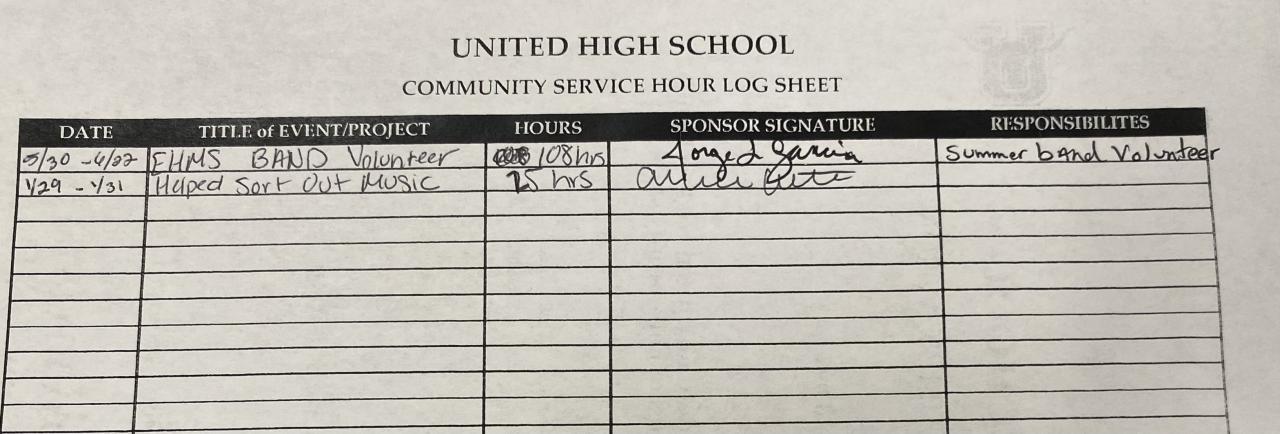 UNITED HIGH SCHOOL
COMMUNITY SERVICE HOUR LOG SHEET
DATE TITLE of EVENT/PROJECT HOURS SPONSOR SIGNATURE RESPONSIBILITES
5/30 - 6/22 EHMS BAND Volunteer 108hrs Jorge L Garcia Summer bAnd Volunteer
1/29 - 1/31 Helped Sort Out Music 25 hrs